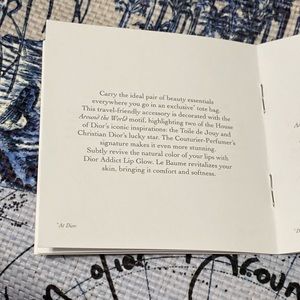 Carry the ideal pair of beauty essentials
everywhere you go in an exclusive* tote bag.
This travel-friendly accessory is decorated with the
Around the World motif, highlighting two of the House
of Dior's iconic inspirations: the Toile de Jouy and
Christian Dior's lucky star. The Couturier-Perfumer's
signature makes it even more stunning.
Subtly revive the natural color of your lips with
Dior Addict Lip Glow. Le Baume revitalizes your
skin, bringing it comfort and softness.
*At Dior